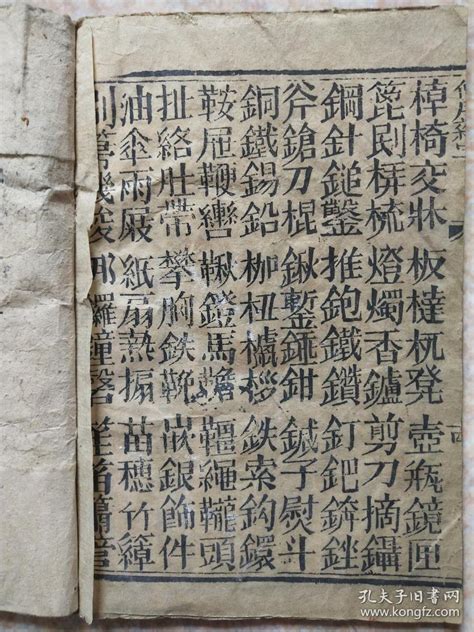 棹椅交牀 板櫈杌凳 壺瓶鏡匣
篦 梳 燈燭香鑪 剪刀摘鑷
鋼針鎚鑿 推鉋鐵鑽 釘鈀錛銼
斧鎗刀棍 鍬鏨 鉗 子熨斗
銅鐵錫鉛 枷杻 鉄索鈎鐶
鞍屉鞭轡 鞦鐙馬韂 韁繩 頭
扯絡肚帶 攀胸鉄 嵌銀飾件
油傘雨屐 紙扇熱搧 苗穗竹
四
孔夫子旧书网
www.kongfz.com